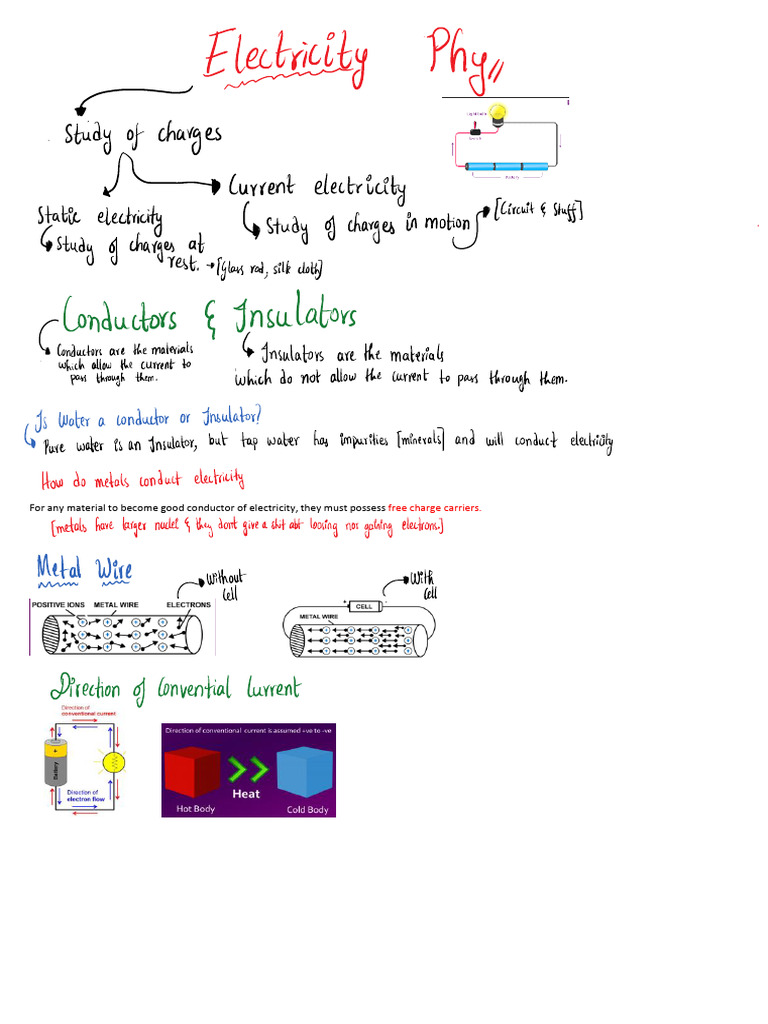 Electricity Phy
Study of charges
Current electricity
Static electricity
Study of charges in motion
[Circuit & Stuff]
Study of charges at
rest. → [Glass rod, silk cloth]
Conductors & Insulators
Conductors are the materials
which allow the current to
pass through them.
Insulators are the materials
which do not allow the current to pass through them.
Is Water a conductor or Insulator?
Pure water is an Insulator, but tap water has impurities [minerals] and will conduct electricity
How do metals conduct electricity
For any material to become good conductor of electricity, they must possess free charge carriers.
[metals have larger nuclei & they dont give a shit abt loosing nor gaining electrons.]
Metal Wire
Without
Cell
POSITIVE IONS METAL WIRE ELECTRONS
With
Cell
+ CELL -
METAL WIRE
Direction of Convential Current
Direction of
conventional current
+
Battery
Direction of
electron flow
Direction of conventional current is assumed +ve to -ve
Heat
Hot Body
Cold Body